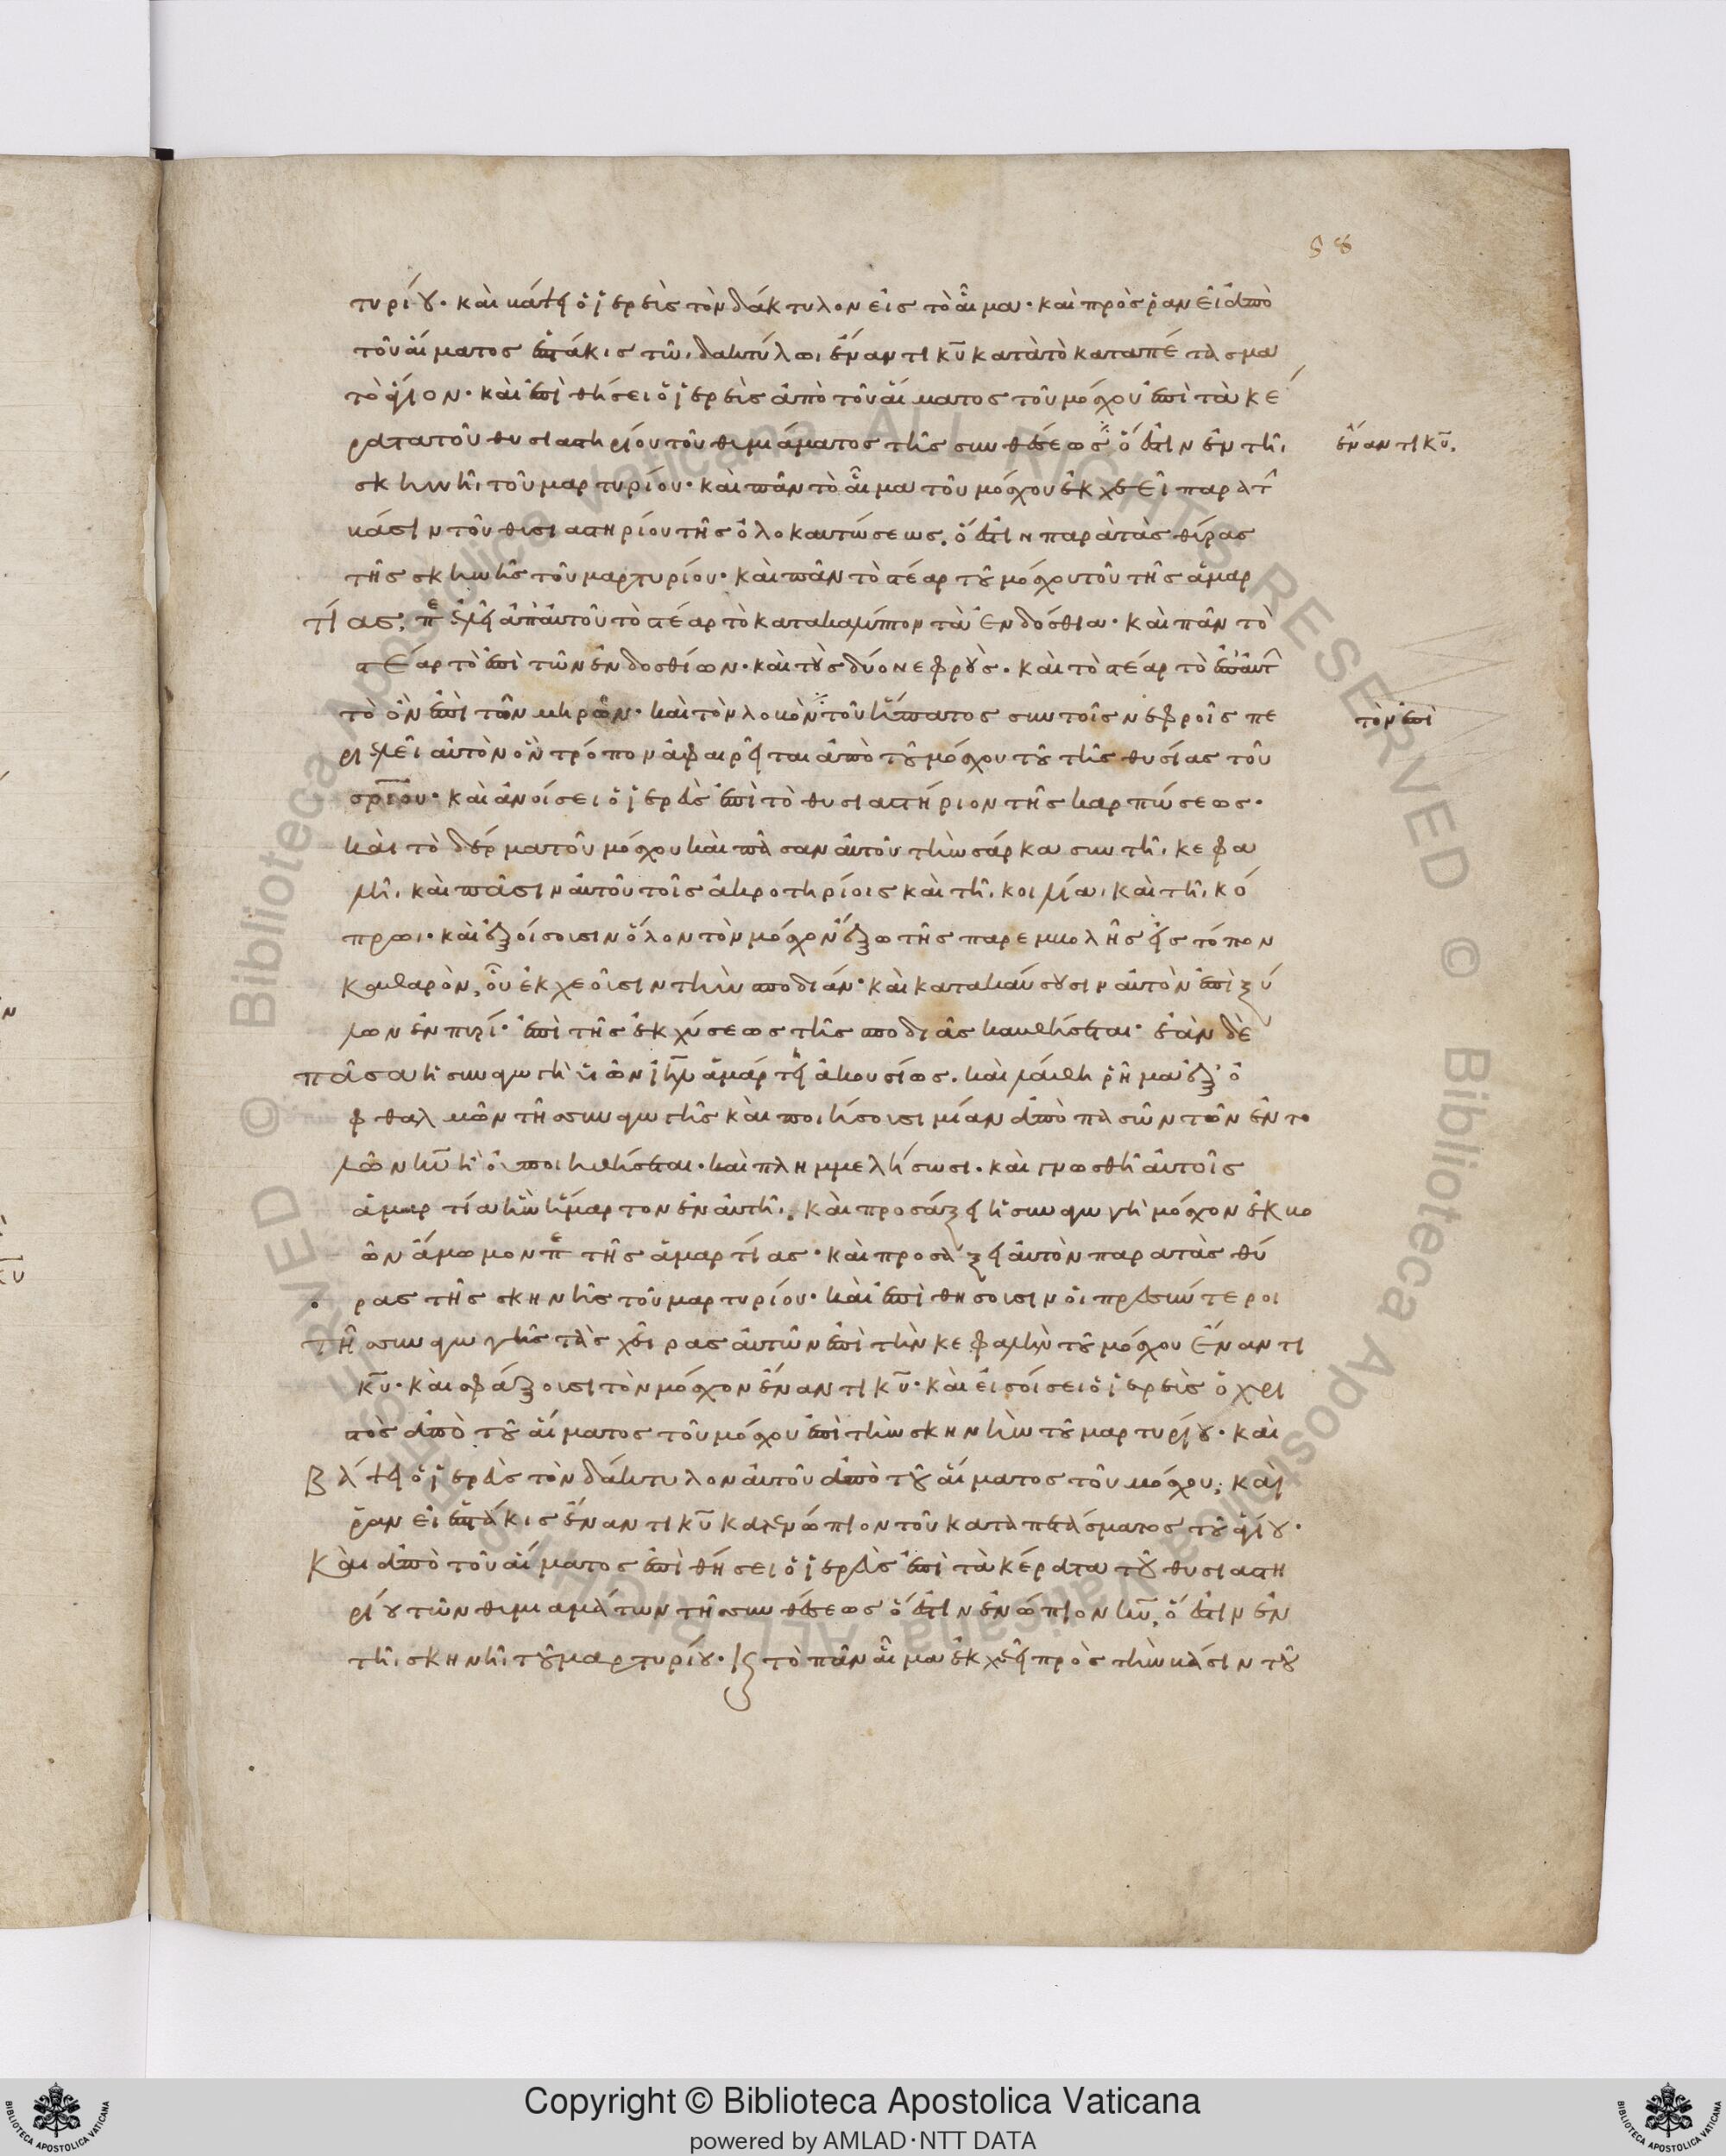 58
τυρίου· καὶ βάψει ὁ ἱερεὺς τὸν δάκτυλον εἰς τὸ αἷμα· καὶ προσρανεῖ ἀπὸ
τοῦ αἵματος ἑπτάκις τῶι δακτύλωι ἔναντι κ̅υ̅ κατὰ τὸ καταπέτασμα
τὸ ἅγιον· καὶ ἐπιθήσει ὁ ἱερεὺς ἀπὸ τοῦ αἵματος τοῦ μόσχου ἐπὶ τὰ κέ
ρατα τοῦ θυσιαστηρίου τοῦ θυμιάματος τῆς συνθέσεως ὅ ἐστιν ἐν τῆι
ἔναντι κ̅υ̅.
σκηνῆι τοῦ μαρτυρίου· καὶ πᾶν τὸ αἷμα τοῦ μόσχου ἐκχεεῖ παρὰ τ
βάσιν τοῦ θυσιαστηρίου τῆς ὁλοκαυτώσεως. ὅ ἐστιν παρὰ τὰς θύρας
τῆς σκηνῆς τοῦ μαρτυρίου· καὶ πᾶν τὸ στέαρ τοῦ μόσχου τοῦ τῆς ἁμαρ
τίας, πε ἑλεῖ ἀπ' αὐτοῦ τὸ στέαρ τὸ κατακαλύπτον τὰ ἐνδόσθια· καὶ πᾶν τὸ
στέαρ τὸ ἐπὶ τῶν ἐνδοσθίων· καὶ τοὺς δύο νεφρούς. καὶ τὸ στέαρ τὸ ἐπ' αὐτ
τὸ ὂν ἐπὶ τῶν μηρῶν· καὶ τὸν λοβὸν τοῦ ἥπατος σὺν τοῖς νεφροῖς πε
τὸν ἐπὶ
ριελεῖ αὐτὸν ὃν τρόπον ἀφαιρεῖται ἀπὸ τοῦ μόσχου τοῦ τῆς θυσίας τοῦ
σ̅ρ̅ι̅ου· καὶ ἀνοίσει ὁ ἱερεὺς ἐπὶ τὸ θυσιαστήριον τῆς καρπώσεως·
καὶ τὸ δέρμα τοῦ μόσχου καὶ πᾶσαν αὐτοῦ τὴν σάρκα σὺν τῆι κεφα
λῆι καὶ πᾶσιν αὐτοῦ τοῖς ἀκροτηρίοις καὶ τῆι κοιλίαι καὶ τῆι κό
πρωι· καὶ ἐξοίσουσιν ὅλον τὸν μόσχον ἔξω τῆς παρεμβολῆς εἰς τόπον
καθαρὸν, οὗ ἐκχεοῦσιν τὴν σποδιάν· καὶ κατακαύσουσιν αὐτὸν ἐπὶ ξύ
λων ἐν πυρί· ἐπὶ τῆς ἐκχύσεως τῆς σποδιᾶς καυθήσεται· ἐὰν δὲ
πᾶσα ἡ συναγωγὴ υἱῶν ι̅η̅λ̅ ἁμάρτηι ἀκουσίως. καὶ λάθη ῥῆμα ἐξ ὀ
φθαλμῶν τῆς συναγωγῆς καὶ ποιήσουσι μίαν ἀπὸ πασῶν τῶν ἐντο
λῶν κ̅υ̅ ἣ οὐ ποιηθήσεται· καὶ πλημμελήσωσι. καὶ γνωσθῆ αὐτοῖς
ἁμαρτία ἣν ἥμαρτον ἐν αὐτῆι. καὶ προσάξει ἡ συναγωγὴ μόσχον ἐκ βο
ῶν ἄμωμον πε τῆς ἁμαρτίας· καὶ προσάξει αὐτὸν παρὰ τὰς θύ
ρας τῆς σκηνῆς τοῦ μαρτυρίου· καὶ ἐπιθήσουσιν οἱ πρεσβύτεροι
τῆς συναγωγῆς τὰς χεῖρας αὐτῶν ἐπὶ τὴν κεφαλὴν τοῦ μόσχου ἔναντι
κ̅υ̅· καὶ σφάξουσι τὸν μόσχον ἔναντι κ̅υ̅· καὶ εἰσοίσει ὁ ἱερεὺς ὁ χρι
στὸς ἀπὸ τοῦ αἵματος τοῦ μόσχου ἐπὶ τὴν σκηνὴν τοῦ μαρτυρίου· καὶ
βάψει ὁ ἱερεὺς τὸν δάκτυλον αὐτοῦ ἀπὸ τοῦ αἵματος τοῦ μόσχου, καὶ
ῥανεῖ ἑπτάκις ἔναντι κ̅υ̅ κατενώπιον τοῦ καταπετάσματος τοῦ ἁγίου·
Καὶ ἀπὸ τοῦ αἵματος ἐπιθήσει ὁ ἱερεὺς ἐπὶ τὰ κέρατα τοῦ θυσιαστη
ρίου τῶν θυμιαμάτων τῆς συνθέσεως ὅ ἐστιν ἐνώπιον κ̅υ̅, ὅ ἐστιν ἐν
τῆι σκηνῆι τοῦ μαρτυρίου· κ̀ τὸ πᾶν αἷμα ἐκχεεῖ πρὸς τὴν βάσιν τοῦ
© Biblioteca Apostolica Vaticana ALL RIGHTS RESERVED
Copyright © Biblioteca Apostolica Vaticana
powered by AMLAD·NTT DATA
BIBLIOTECA APOSTOLICA VATICANA
BIBLIOTECA APOSTOLICA VATICANA